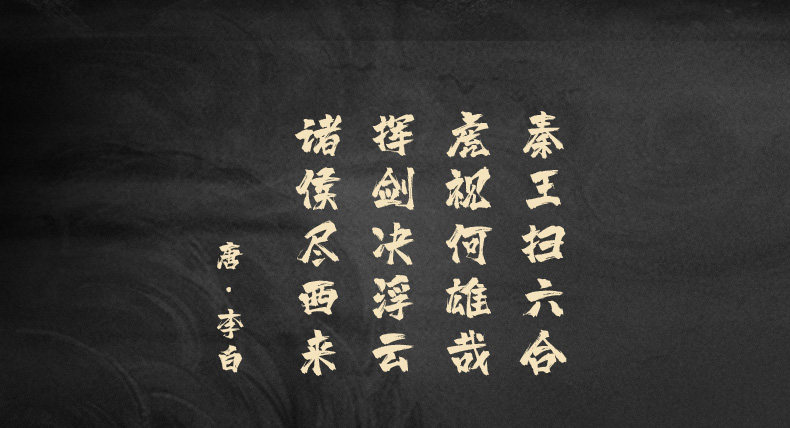 秦王扫六合
虎祝何雄哉
挥剑决浮云
诸侯尽西来
唐·李白